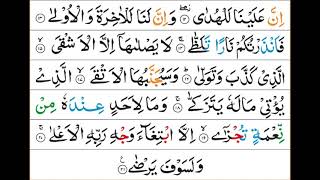 اِنَّ عَلَيْنَا لَلْهُدٰى ۖ ۝۱۲ وَاِنَّ لَنَا لَلْاٰخِرَةَ وَالْاُوْلٰى
۝۱۳ فَاَنْذَرْتُكُمْ نَارًا تَلَظّٰى ۝۱۴ لَا يَصْلٰىهَا اِلَّا الْاَشْقَى
۝۱۵ الَّذِيْ كَذَّبَ وَتَوَلّٰى ۝۱۶ وَسَيُجَنَّبُهَا الْاَتْقَى ۝۱۷ الَّذِيْ
يُؤْتِيْ مَالَهٗ يَتَزَكّٰى ۝۱۸ وَمَا لِاَحَدٍ عِنْدَهٗ مِنْ
نِّعْمَةٍ تُجْزٰٓى ۝۱۹ اِلَّا ابْتِغَآءَ وَجْهِ رَبِّهِ الْاَعْلٰى ۝۲۰
وَلَسَوْفَ يَرْضٰى ۝۲۱